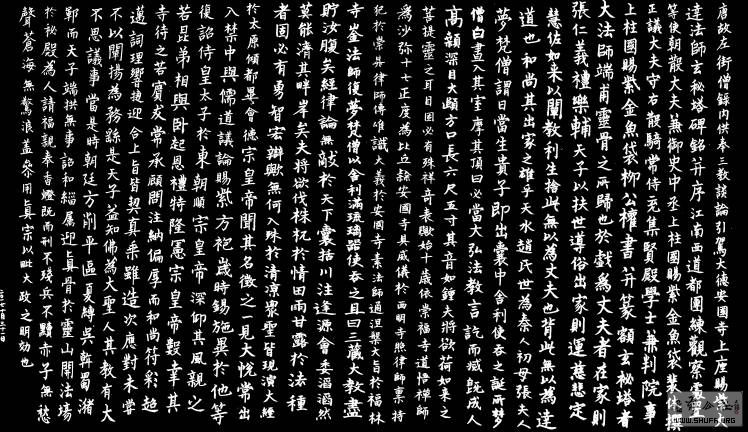 唐故左街僧錄內供奉三教談論引駕大德安國寺上座賜紫大
達法師玄秘塔碑銘并序江南西道都團練觀察處置
等使朝散大夫兼御史中丞上柱國賜紫金魚袋裴休撰
正議大夫守右散騎常侍充集賢殿學士兼判院事
上柱國賜紫金魚袋柳公權書并篆額玄秘塔者
大法師端甫靈骨之所歸也於戲為丈夫者在家則
張仁義禮樂輔天子以扶世導俗出家則運慈悲定
慧佐如來以闡教利生捨此無以為丈夫也背此無以為達
道也和尚其出家之雄乎天水趙氏世為秦人初母張夫人
夢梵僧謂曰當生貴子即出囊中舍利使吞之誕所夢
僧白晝入其室摩其頂曰必當大弘法教言訖而滅既成人
高顙深目大頤方口長六尺五寸其音如鍾夫將欲荷如來之
菩提靈之耳目固必有殊祥奇表歟始十歲依崇福寺道悟禪師
為沙彌十七正度為比丘隸安國寺具威儀於西明寺照律師稟持
犯於崇昇律師傳唯識大義於安國寺素法師通涅槃大旨於福林
寺崟法師復夢梵僧以舍利滿琉璃器使吞之且曰三藏大教盡
貯汝腹矣經律論無敵於天下囊括川注逢源會委滔滔然
莫能濟其畔岸矣夫將欲伐株杌於情田雨甘露於法種
者固必有勇智宏辯歟無何入殊於清涼眾聖皆現演大經
於太原傾都畢會德宗皇帝聞其名徵之一見大悅常出
入禁中與儒道議論賜紫方袍歲時錫施異於他等
復詔侍皇太子於東朝順宗皇帝深仰其風親之
若昆弟相與臥起恩禮特隆憲宗皇帝數幸其
寺待之若賓友常承顧問注納偏厚而和尚符彩超
邁詞理響捷迎合上旨皆契真乘雖造次應對未嘗
不以闡揚為務繇是天子益知佛為大聖人其教有大
不思議事當是時朝廷方削平區夏縛吳斡蜀瀦
鄆而天子端拱無事詔和緇屬迎真骨於靈山開法場
於秘殿為人請福親奉香燈既而刑不殘兵不黷赤子無愁
聲蒼海無驚浪蓋參用真宗以毗大政之明効也
WWW.SHUFA.ORG